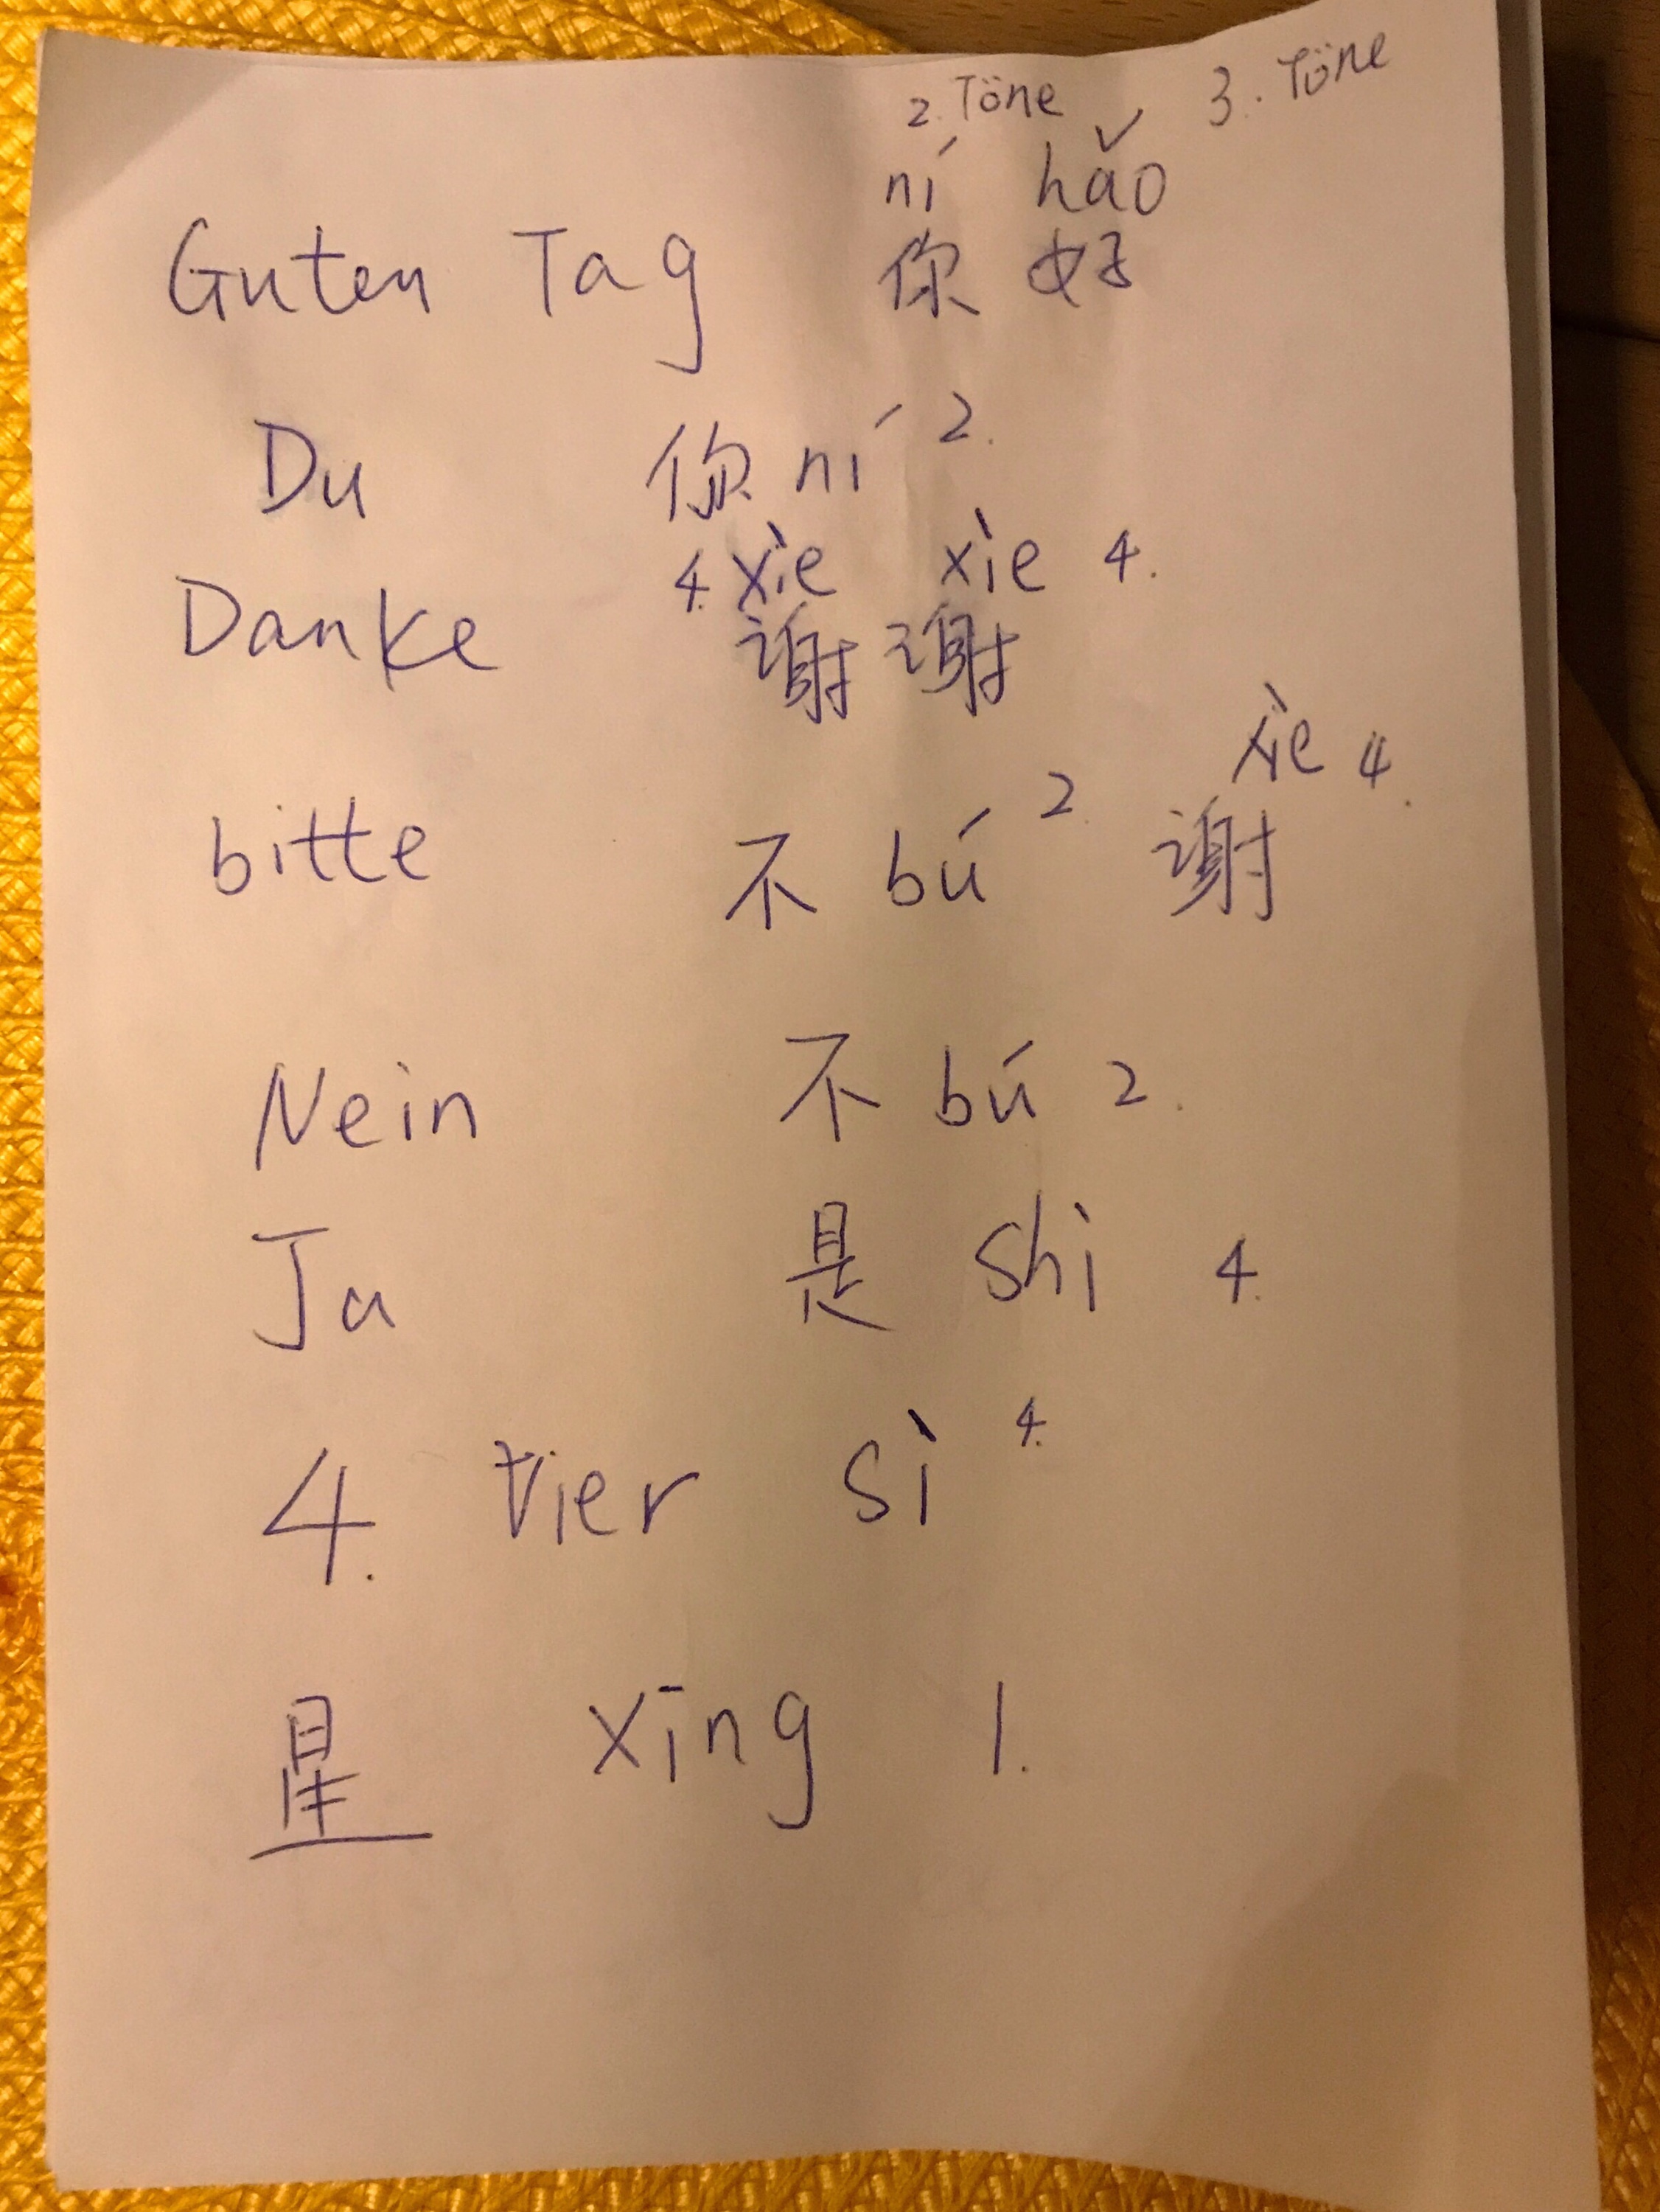 2. Töne 3. Töne
ní hǎo
Guten Tag 你 好
Du 你 ní 2.
4. xìe xìe 4.
Danke 谢 谢
xìe 4.
bitte 不 bú 2. 谢
Nein 不 bú 2.
Ja 是 shì 4.
4. vier sì 4.
星 xīng 1.